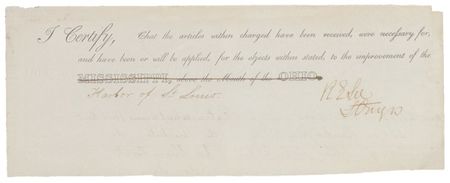 I Certify, That the articles within charged have been received, were necessary for,
and have been or will be applied, for the objects within stated, to the improvement of the
MISSISSIPPI, above the Mouth of the OHIO.
Harbor of St Louis
R E Lee